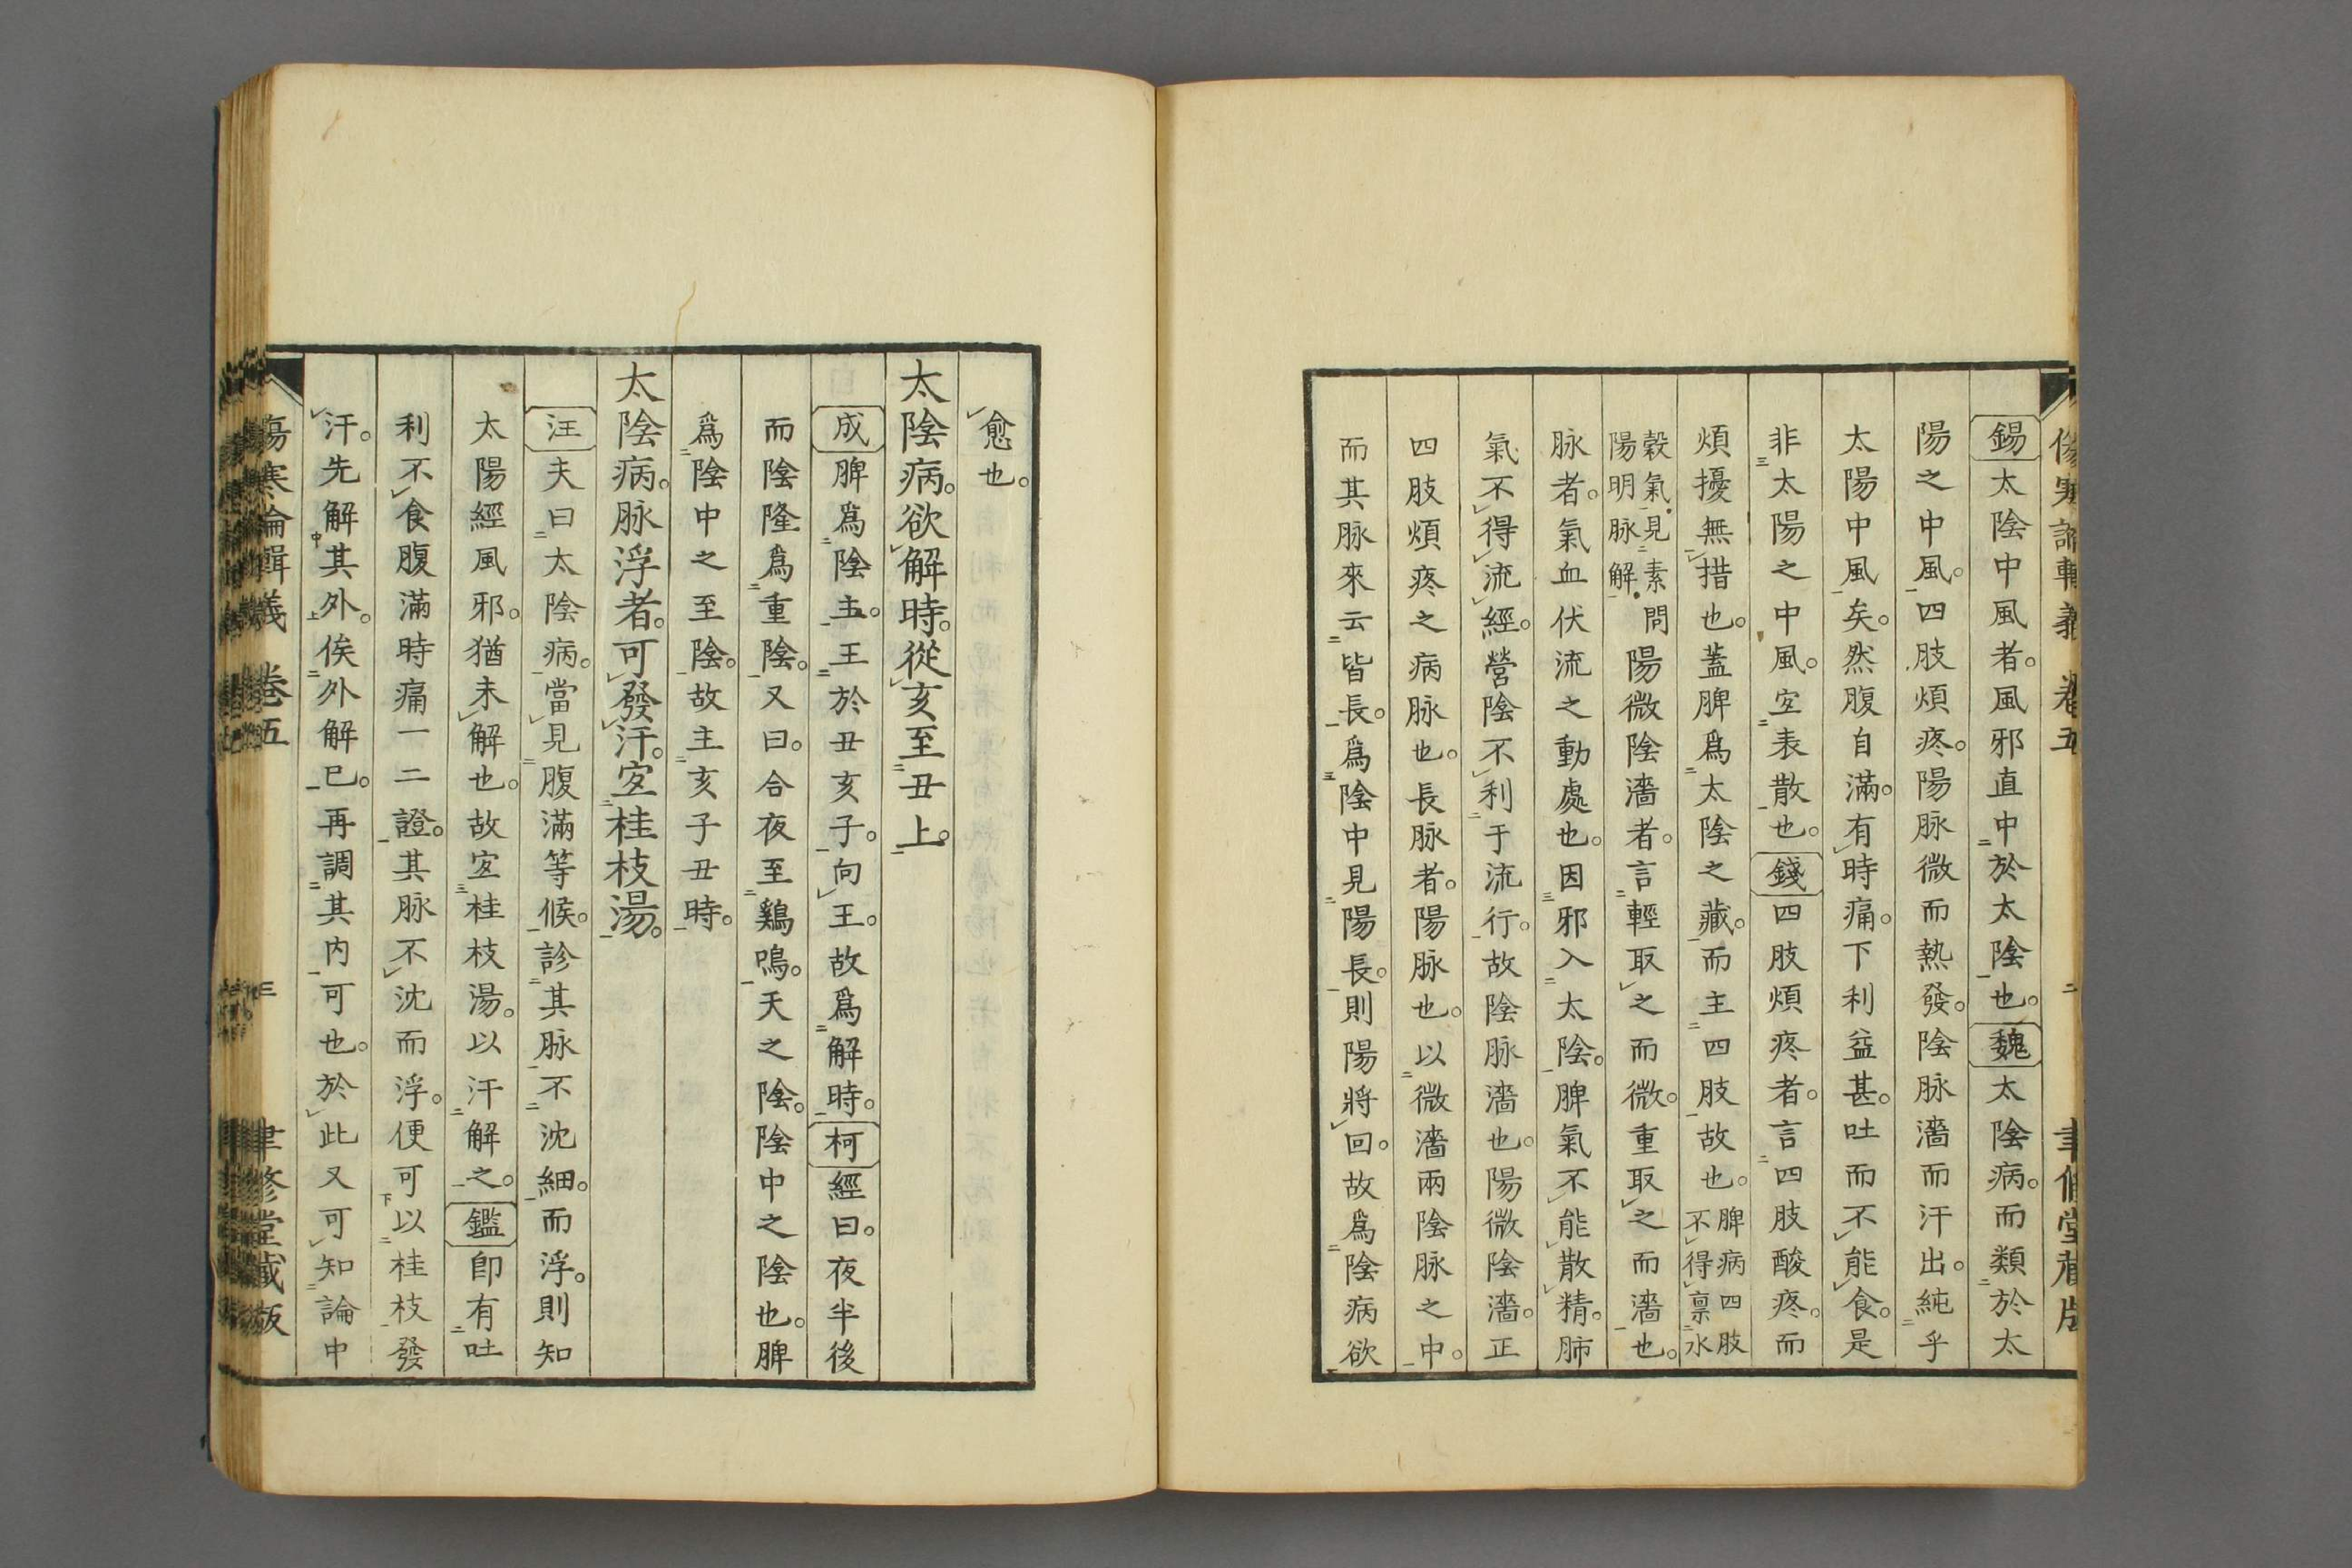 錫太陰中風者。風邪直中於太陰也。魏太陰病。而類於太
陽之中風。四肢煩疼。陽脉微而熱發。陰脉濇而汗出。純乎
太陽中風矣。然腹自滿。有時痛。下利益甚。吐而不能食。是
非太陽之中風。宐表散也。錢四肢煩疼者。言四肢酸疼。而
煩擾無措也。蓋脾爲太陰之藏。而主四肢故也。脾病四肢不得禀水
穀氣。見素問陽明脉解。陽微陰濇者。言輕取之而微。重取之而濇也。
脉者。氣血伏流之動處也。因邪入太陰。脾氣不能散精。肺
氣不得流經。營陰不利于流行。故陰脉濇也。陽微陰濇。正
四肢煩疼之病脉也。長脉者。陽脉也。以微濇兩陰脉之中。
而其脉來云皆長。爲陰中見陽長。則陽將回。故爲陰病欲
愈也。
太陰病。欲解時。從亥至丑上。
成脾爲陰主。王於丑亥子。向王。故爲解時。柯經曰。夜半後
而陰隆爲重陰。又曰。合夜至鷄鳴。天之陰。陰中之陰也。脾
爲陰中之至陰。故主亥子丑時。
太陰病。脉浮者。可發汗。宐桂枝湯。
汪夫曰太陰病。當見腹滿等候。診其脉不沈細。而浮。則知
太陽經風邪。猶未解也。故宐桂枝湯。以汗解之。鑑卽有吐
利不食腹滿時痛一二證。其脉不沈而浮。便可以桂枝發
汗。先解其外。俟外解已。再調其内可也。於此又可知論中
傷寒論輯義 卷五 三 聿修堂藏版